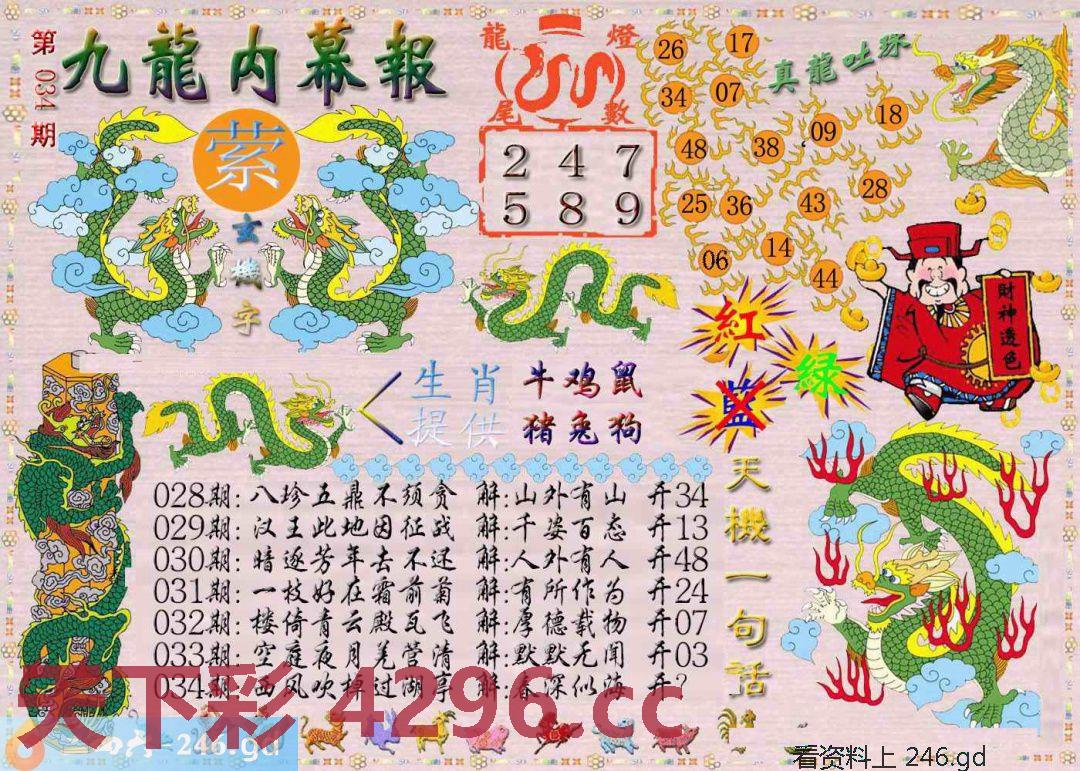 第034期
九龍内幕報
萦
玄機字
龍燈尾數
2 4 7
5 8 9
真龍吐珠
26 17
34 07
48 38 09 18
25 36 43 28
06 14 44
財神透色
紅
藍
绿
生肖提供
牛鸡鼠
猪兔狗
天機一句話
028期:八珍五鼎不须贪 解:山外有山 开34
029期:汉王此地因征战 解:千姿百态 开13
030期:暗逐芳年去不还 解:人外有人 开48
031期:一枝好在霜前菊 解:有所作为 开24
032期:楼倚青云殿瓦飞 解:厚德载物 开07
033期:空庭夜月羌管清 解:默默无闻 开03
034期:西风吹棹过湖亭 解:春深似海 开?
天下彩 4296.cc
246.gd
看资料上 246.gd